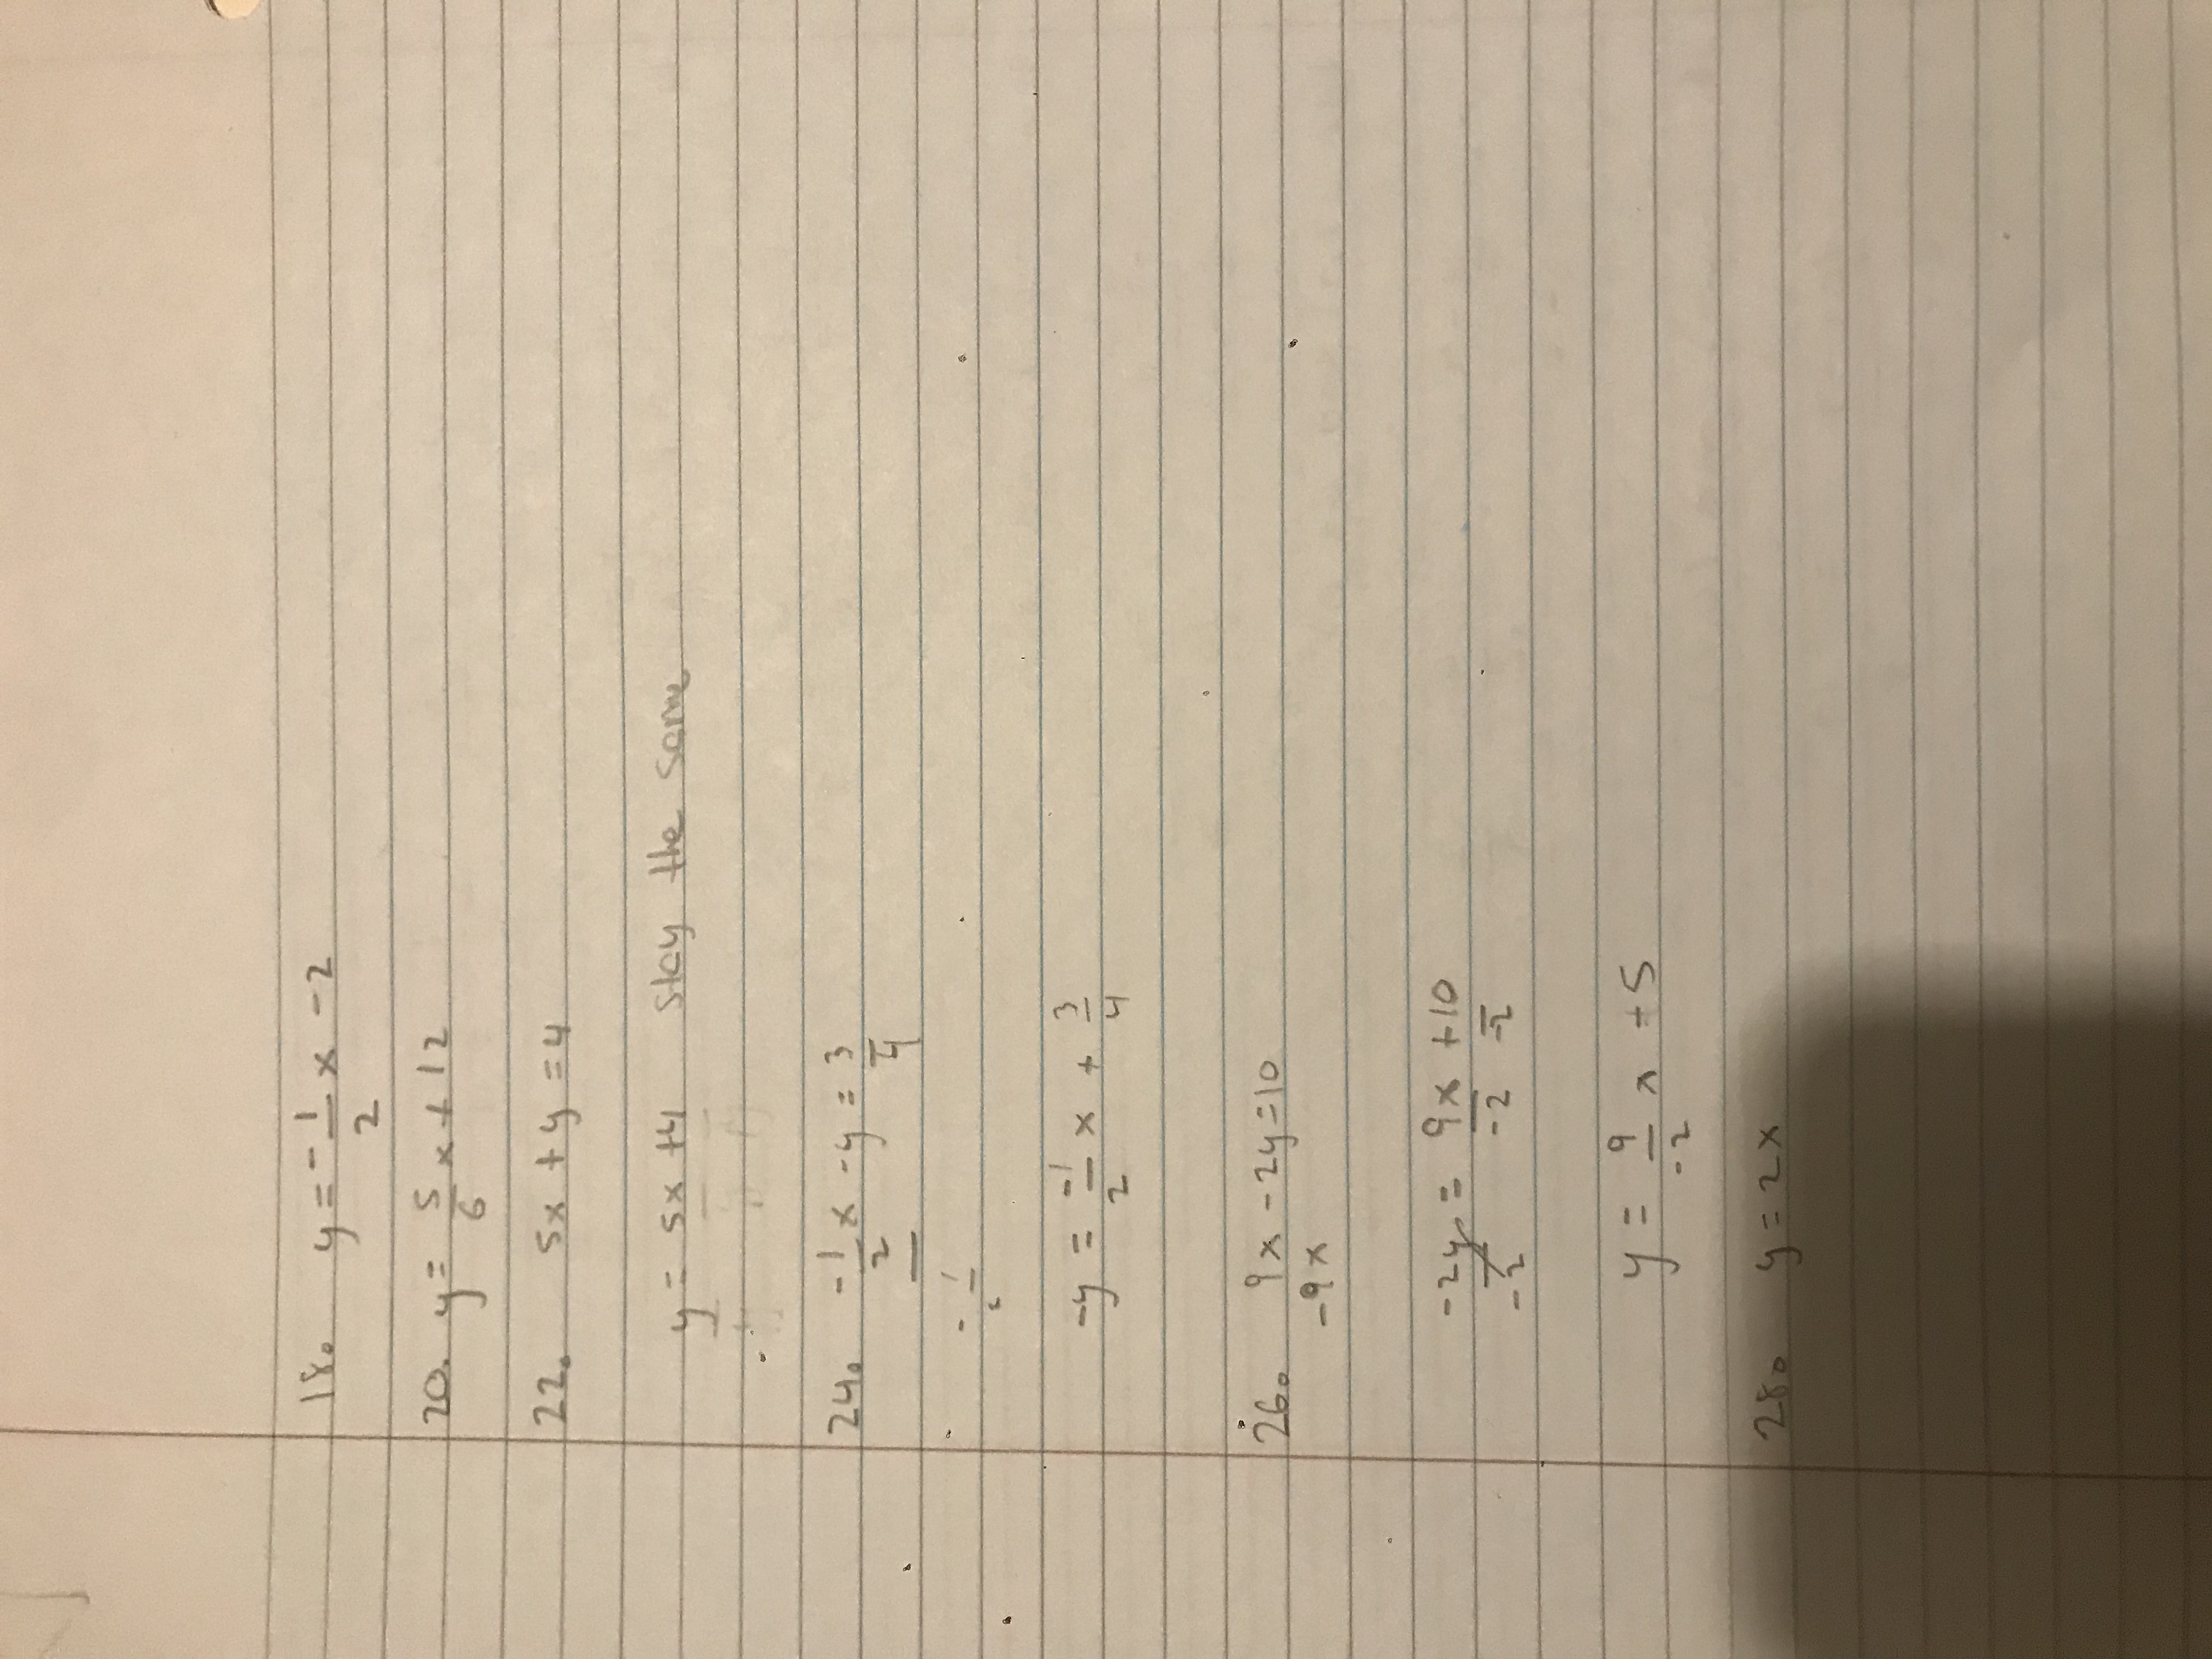 18. y = -1/2 x - 2
20. y = 5/6 x + 12
22. 5x + y = 4
y = 5x + 4 stay the same
24. -1/2 x - y = 3/4
- 1/2
-y = -1/2 x + 3/4
26. 9x - 2y = 10
-9x
-2y/-2 = 9x/-2 + 10/-2
y = 9/-2 x + 5
28. y = 2x